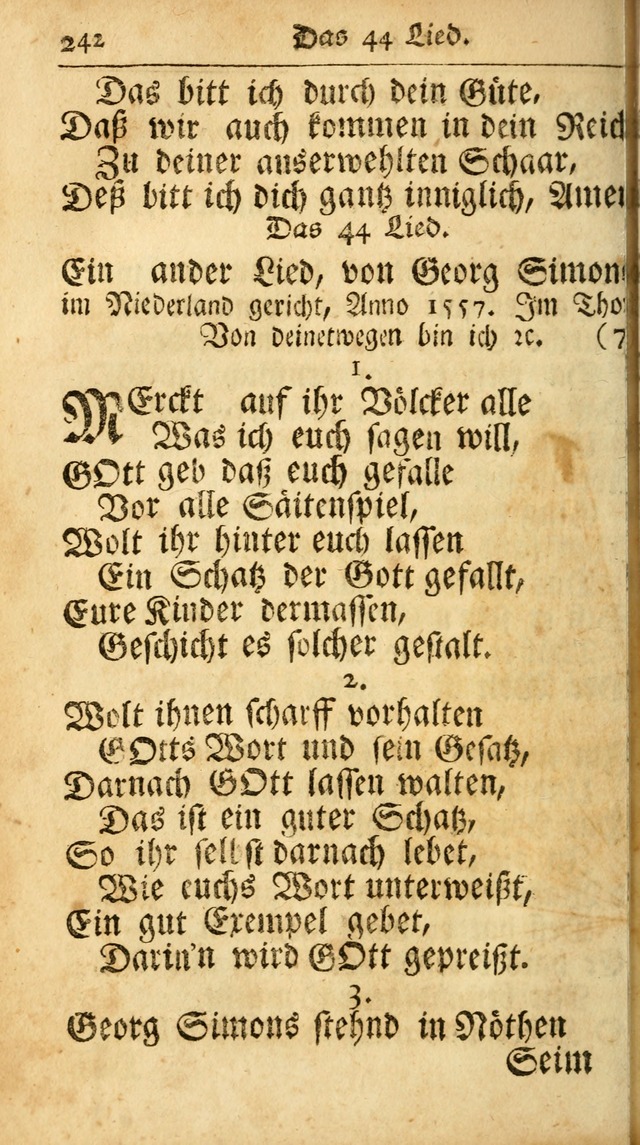 242 Das 44 Lied.
Das bitt ich durch dein Güte,
Daß wir auch kommen in dein Reich
Zu deiner auserwehlten Schaar,
Deß bitt ich dich gantz inniglich, Amen
Das 44 Lied.
Ein ander Lied, von Georg Simons
im Niederland gericht, Anno 1557. Im Tho
Von deinetwegen bin ich ꝛc. (7
1.
MErckt auf ihr Völcker alle
Was ich euch sagen will,
GOtt geb daß euch gefalle
Vor alle Säitenspiel,
Wolt ihr hinter euch lassen
Ein Schatz der Gott gefallt,
Eure Kinder dermassen,
Geschicht es solcher gestalt.
2.
Wolt ihnen scharff vorhalten
GOtts Wort und sein Gesatz,
Darnach GOtt lassen walten,
Das ist ein guter Schatz,
So ihr selbst darnach lebet,
Wie euchs Wort unterweißt,
Ein gut Exempel gebet,
Darin'n wird GOtt gepreißt.
3.
Georg Simons stehnd in Nöthen
Seim